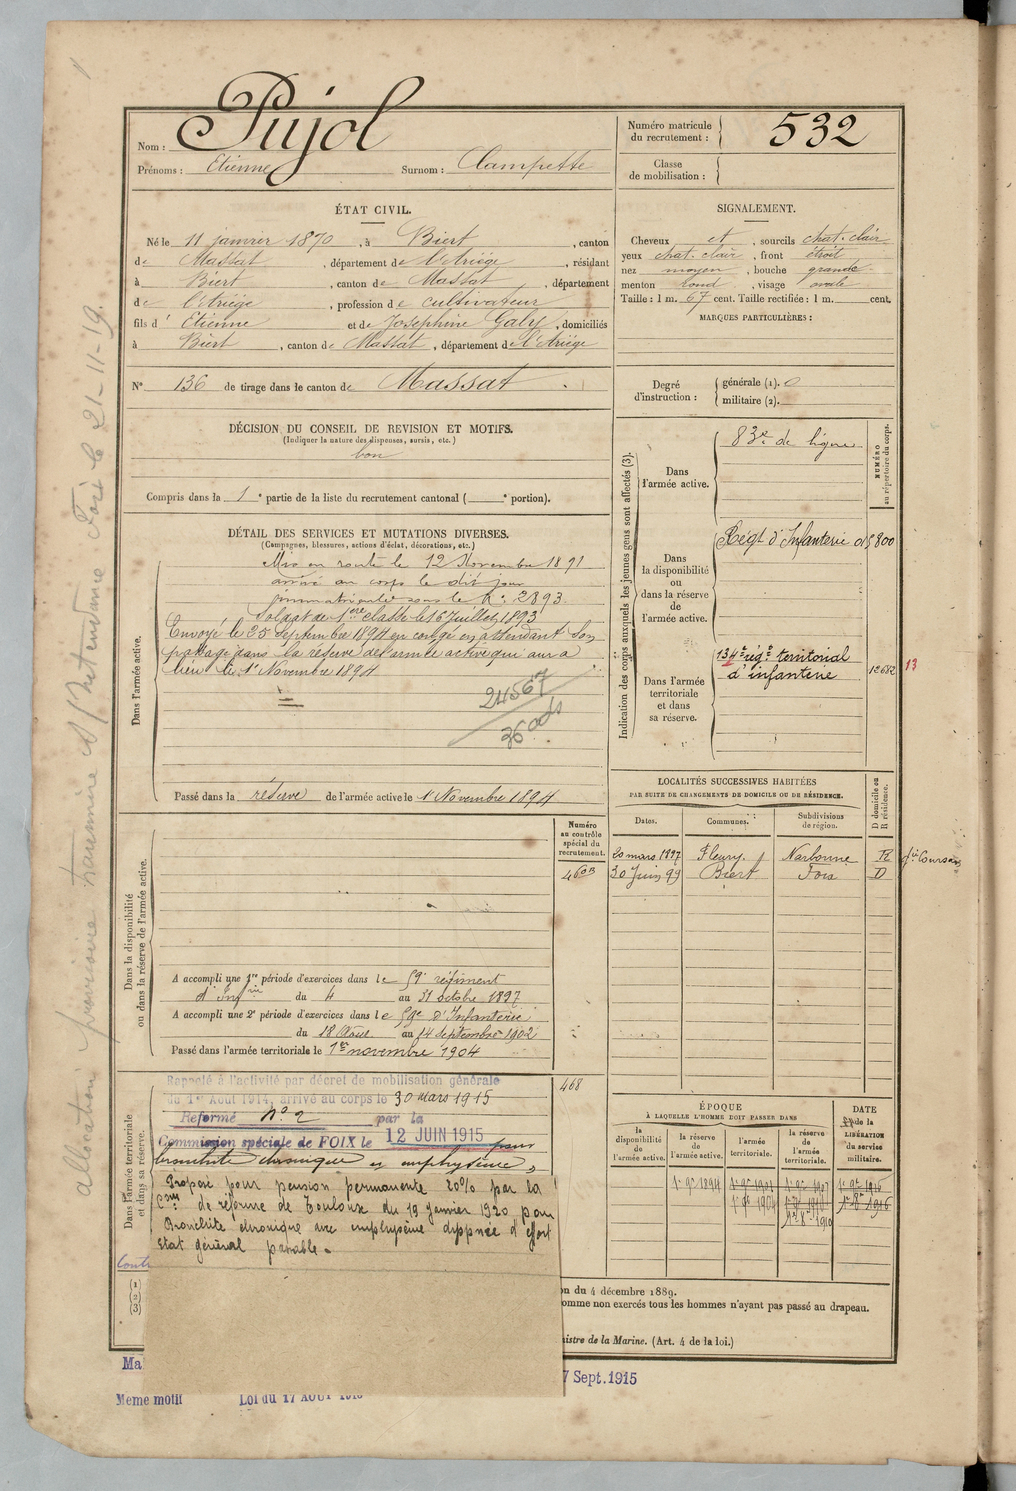 Nom : Pujol
Prénoms : Etienne Surnom : Clampette
Numéro matricule du recrutement : 532
Classe de mobilisation :
ÉTAT CIVIL.
Né le 11 janvier 1870, à Biert, canton
de Massat, département de l'Ariège, résidant
à Biert, canton de Massat, département
de l'Ariège, profession de cultivateur
fils d'Etienne et de Josephine Galy, domiciliés
à Biert, canton de Massat, département de l'Ariège
N° 136 de tirage dans le canton de Massat.
SIGNALEMENT.
Cheveux et, sourcils chat. clair
yeux chat. clair, front étroit
nez moyen, bouche grande
menton rond, visage ovale
Taille : 1 m. 67 cent. Taille rectifiée : 1 m. cent.
MARQUES PARTICULIÈRES :
Degré d'instruction : générale (1). 0
militaire (2).
DÉCISION DU CONSEIL DE REVISION ET MOTIFS.
(Indiquer la nature des dispenses, sursis, etc.)
bon
Compris dans la 1e partie de la liste du recrutement cantonal ( e portion).
DÉTAIL DES SERVICES ET MUTATIONS DIVERSES.
(Campagnes, blessures, actions d'éclat, décorations, etc.)
Dans l'armée active.
Mis en route le 12 Novembre 1891
arrivé au corps le dit jour
immatriculé sous le N° 2893.
Soldat de 1ère classe le 16 juillet 1893
Envoyé le 25 septembre 1894 en congé en attendant son
passage dans la réserve de l'armée active qui aura
lieu le 1r Novembre 1894
24567
36 ads
Passé dans la réserve de l'armée active le 1r Novembre 1894
Indication des corps auxquels les jeunes gens sont affectés (3).
NUMÉRO au répertoire du corps.
Dans l'armée active. 83e de ligne
Dans la disponibilité ou dans la réserve de l'armée active.
Régt d'Infanterie
Dans l'armée territoriale et dans sa réserve.
134e régt territorial
d'infanterie
12682
13
LOCALITÉS SUCCESSIVES HABITÉES
PAR SUITE DE CHANGEMENTS DE DOMICILE OU DE RÉSIDENCE.
D domicile ou R résidence.
Dates. Communes. Subdivisions de région.
20 mars 1897 Fleury Narbonne R
30 Juin 99 Biert Foix D
Dans la disponibilité ou dans la réserve de l'armée active.
Numéro au contrôle spécial du recrutement.
A accompli une 1re période d'exercices dans le 59e régiment
d'Infrie du 4 au 31 octobre 1897
A accompli une 2e période d'exercices dans le 59e d'Infanterie
du 18 Août au 14 septembre 1902
Passé dans l'armée territoriale le 1er novembre 1904
468
Dans l'armée territoriale et dans sa réserve.
Rappelé à l'activité par décret de mobilisation générale
du 1er Août 1914, arrivé au corps le 30 mars 1915
Réformé n° 2 par la
Commission spéciale de FOIX le 12 JUIN 1915 pour
bronchite chronique et emphysème
Proposé pour pension permanente 20% par la
Com de réforme de Toulouse du 19 janvier 1920 pour
Bronchite chronique avec emphysème dyspnée d'effort
Etat général passable.
ÉPOQUE
À LAQUELLE L'HOMME DOIT PASSER DANS
la disponibilité de l'armée active.
la réserve de l'armée active.
l'armée territoriale.
la réserve de l'armée territoriale.
DATE de la LIBÉRATION du service militaire.
(1)
(2)
(3)
on du 4 décembre 1889.
omme non exercés tous les hommes n'ayant pas passé au drapeau.
istre de la Marine. (Art. 4 de la loi.)
Ma
7 Sept. 1915
Meme motif Loi du 17 AOUT 1915
allocation provisoire Foix le 21-11-19.